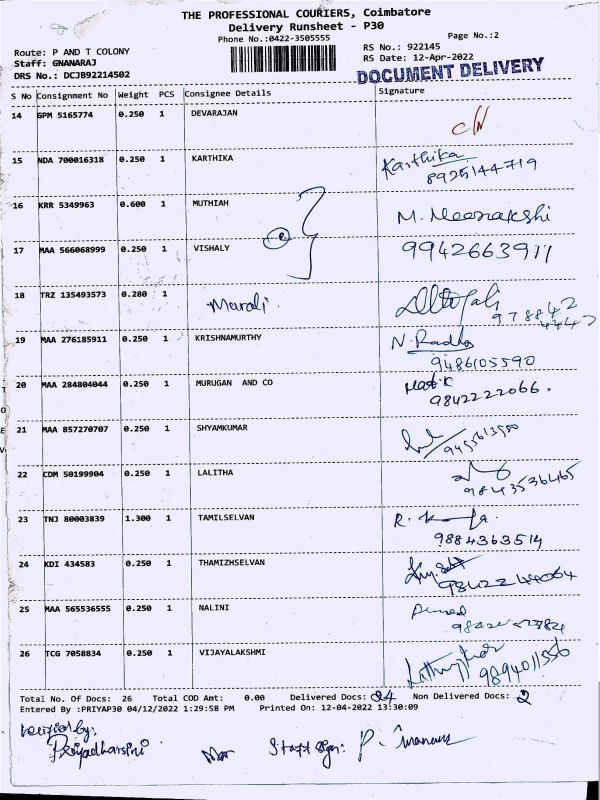 THE PROFESSIONAL COURIERS, Coimbatore
Delivery Runsheet - P30
Phone No.:0422-3505555
Page No.:2
Route: P AND T COLONY
RS No.: 922145
Staff: GNANARAJ
RS Date: 12-Apr-2022
DRS No.: DCJB92214502
DOCUMENT DELIVERY
S No Consignment No Weight PCS Consignee Details Signature
14 GPM 5165774 0.250 1 DEVARAJAN
15 NDA 700016318 0.250 1 KARTHIKA Karthika
8925144719
16 KRR 5349963 0.600 1 MUTHIAH M. Meenakshi
17 MAA 566068999 0.250 1 VISHALY 9942663911
18 TRZ 135493573 0.280 1 Murali
978842
4442
19 MAA 276185911 0.250 1 KRISHNAMURTHY N. Radha
9486105590
20 MAA 284804044 0.250 1 MURUGAN AND CO
9842222066.
21 MAA 857270707 0.250 1 SHYAMKUMAR
22 CDM 50199904 0.250 1 LALITHA
9843536465
23 TNJ 80003839 1.300 1 TAMILSELVAN R.
9884363514
24 KDI 434583 0.250 1 THAMIZHSELVAN
25 MAA 565536555 0.250 1 NALINI
26 TCG 7058834 0.250 1 VIJAYALAKSHMI
9894011556
Total No. Of Docs: 26 Total COD Amt: 0.00 Delivered Docs: 24 Non Delivered Docs: 2
Entered By :PRIYAP30 04/12/2022 1:29:58 PM Printed On: 12-04-2022 13:30:09
verified by:
Priyadharsini Staff sign: